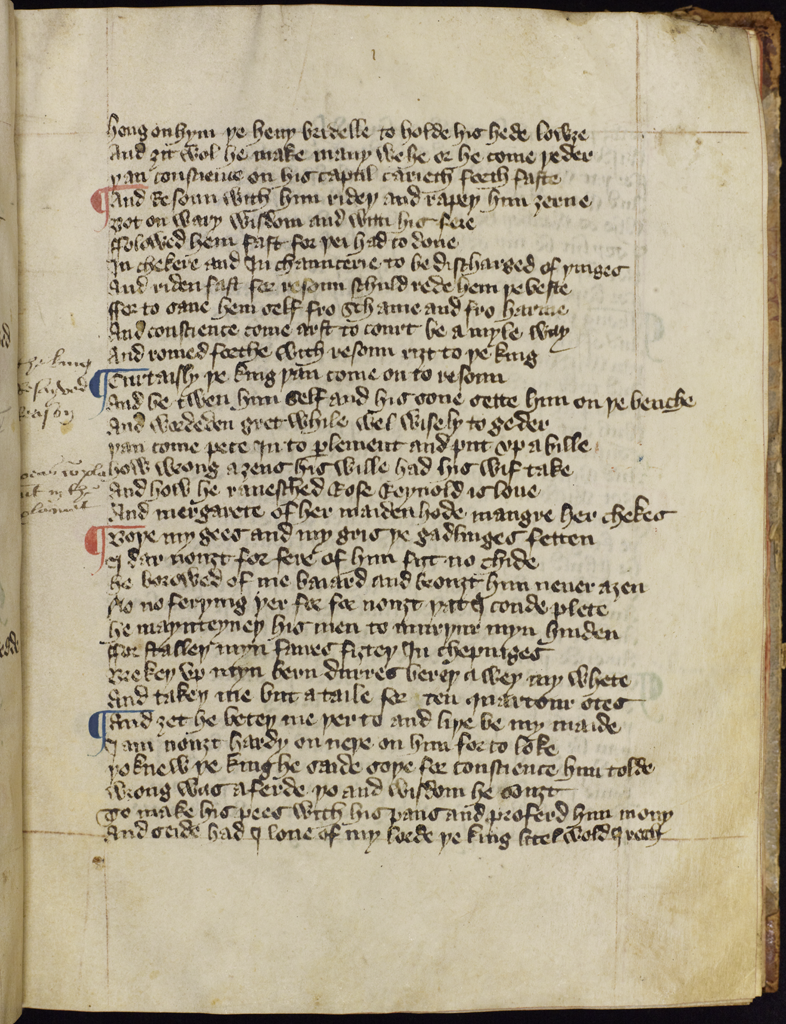 heng on hym þe heuy bridelle to holde his hede lowȝe
And ȝit wol he make many wehe or he come þeder
þan conscience on his captil carieth forth faste
And Resoun with him rideþ and rapeþ him ȝerne
Bot on wary wisdom and witti his fere
ffolowed hem fast for þei had to done
In chekere and In chauncerie to be discharged of þinges
And riden fast for resoun schuld rede hem þe beste
ffor to saue hem self fro schame and fro harme
And conscience come arst to court be a myle way
And romed forthe with resoun riȝt to þe king
the king
reseyued
reason
Curtaisly þe king þan come on to resoun
And be twen him self and his sone sette him on þe benche
And wordeden gret while wel wisely to geder
þan come pece In to plement and put vp a bille
how wrong aȝens his wille had his wif take
And how he raueschid Rose Reynold is loue
And mergarete of her maidenhode maugre her chekes
Boþe my gees and my gris þe gadlinges fetten
I dar nouȝt for fere of him fiȝt no chide
he borowed of me baiard and brouȝt him neuer aȝen
No no ferþing þer for for nouȝt þat I coude plete
he maynteyneþ his men to murþur myn hinden
ffor stalleþ myn faires fiȝteþ In chepinges
Brekeþ vp myn bern durres bereþ a wey my whete
And takeþ me but a taile for ten quartour otes
And ȝet he beteþ me þer to and liþe be my maide
I am nouȝt hardy on neþe on him for to loke
þo knew þe king he saide soþe for conscience him tolde
wrong was aferde þo and wisdom he souȝt
To make his pees with his pans and proferd him mony
And seide had I loue of my lorde þe king litel wold I recch